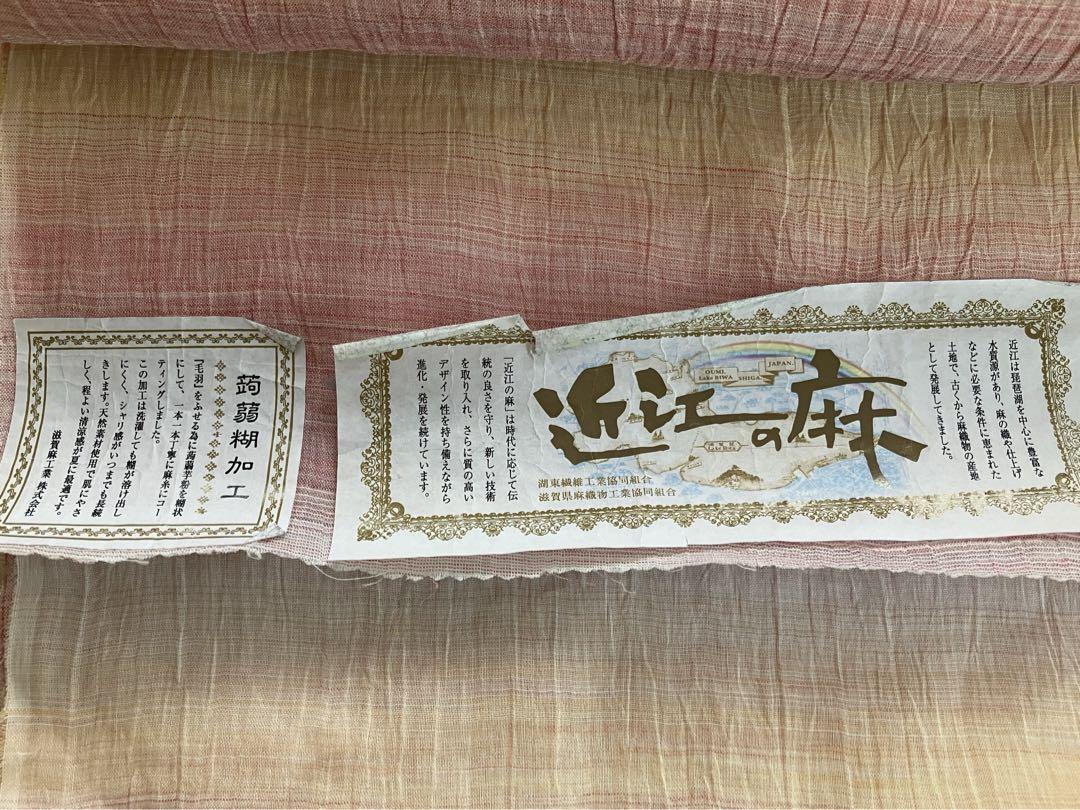 蒟蒻糊加工
「毛羽」をふせる為に蒟蒻芋粉を糊状
にして、一本一本丁寧に麻糸にコー
ティングしました。
この加工は洗濯しても糊が溶け出し
にくく、シャリ感がいつまでも長続
きします。天然素材使用で肌にやさ
しく、程よい清涼感が夏に最適です。
滋賀麻工業 株式会社
近江は琵琶湖を中心に豊富な
水質源があり、麻の織や仕上げ
などに必要な条件に恵まれた
土地で、古くから麻織物の産地
として発展してきました。
近江の麻
JAPAN.
OUMI.
Lake BIWA
SHIGA.
湖東繊維工業協同組合
滋賀県麻織物工業協同組合
「近江の麻」は時代に応じて伝
統の良さを守り、新しい技術
を取り入れ、さらに質の高い
デザイン性を持ち備えながら
進化・発展を続けています。